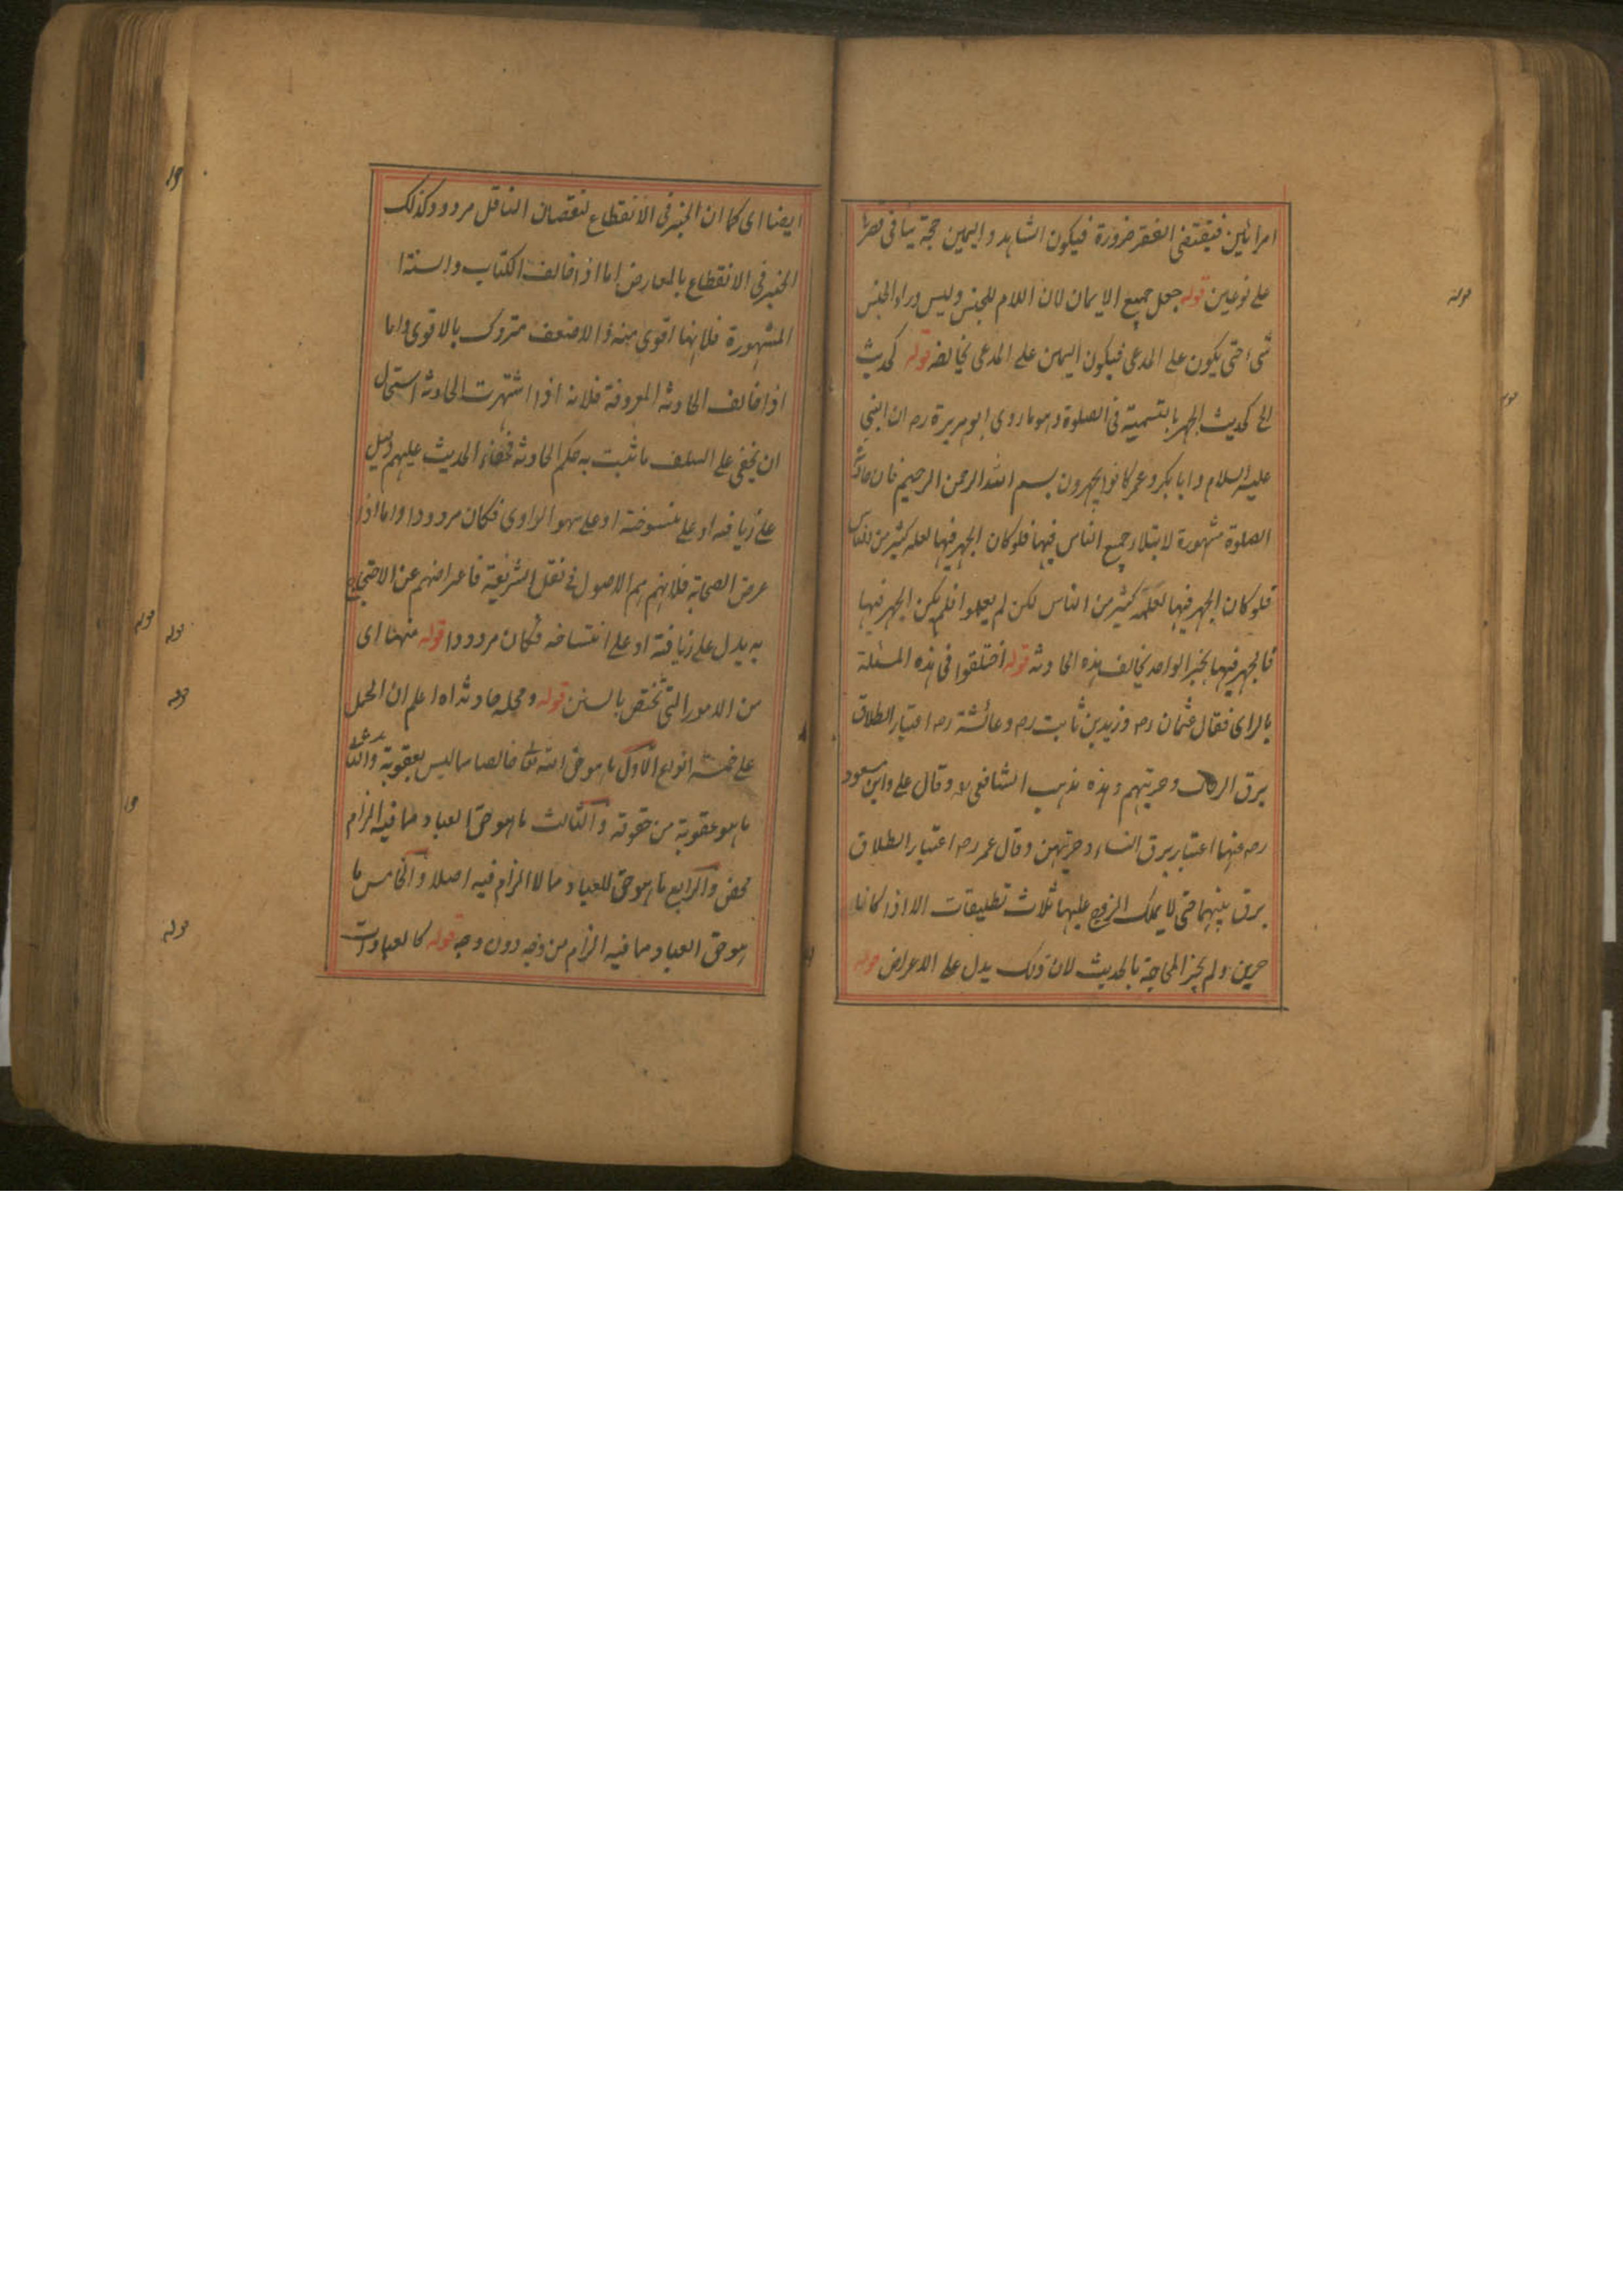 امرأتين فيقتضى الفقر ضرورة فيكون الشاهد واليمين حجة ينافى قصرها
على نوعين قوله جعل جميع الايمان لان اللام للجنس وليس وراء الجنس
شىء حتى يكون على المدعى فيكون اليمين على المدعى يخالفه قوله كحديث
الخ كحديث الجهر بالتسمية فى الصلوة وهو ما روى ابو هريرة رض ان النبى
عليه السلام وابا بكر وعمر كانوا يجهرون بسم الله الرحمن الرحيم فان حادثة
الصلوة مشهورة لابتلاء جميع الناس فيها فلو كان الجهر فيها لعله كثير من الناس
فلو كان الجهر فيها لعلمه كثير من الناس لكن لم يعلموا فلم يكن الجهر فيها
فالجهر فيها بخبر الواحد يخالف هذه الحادثه قوله اختلفوا فى هذه المسئلة
بالراى فقال عثمان رض وزيد بن ثابت رض وعائشة رض اعتبار الطلاق
برق الرجال وحريتهم وهذه مذهب الشافعى ره وقال على وابن مسعود
رض عنهما اعتبار برق النساء وحريتهن وقال عمر رض اعتبار الطلاق
برق بينهما حتى لا يملك الزوج عليها ثلاث تطليقات الا اذا كانا
حرين ولم يجز المحاجة بالحديث لان ذلك يدل على الاعراض قوله
ايضا اى كما ان الخبر فى الانقطاع لنقصان الناقل مردود وكذلك
الخبر فى الانقطاع بالمعارض اما اذا خالف الكتاب والسنة
المشهورة فلانها اقوى منه والاضعف متروك بالاقوى واما
اذا خالف الحادثه المعروفة فلانه اذا اشتهرت الحادثه استحال
ان يخفى على السلف ما ثبت به حكم الحادثه فخفاء الحديث عليهم دليل
على زيافته او على منسوخته او على سهو الراوى فكان مردودا واما اذا
عرض الصحابة فلانهم هم الاصول فى نقل الشريعة فاعراضهم عن الاحتجاج
به يدل على زيافته او على انتساخه فكان مردودا قوله منها اى
من الامور التى تختص بالسنن قوله ومحله حادثه اه اعلم ان المحل
على خمسة انواع الاول ما هو حق الله تعالى خالصا مما ليس بعقوبة والثانى
ما هو عقوبة من حقوقه والثالث ما هو حق العباد مما فيه الزام
محض والرابع ما هو حق للعباد مما لا الزام فيه اصلا والخامس ما
هو حق العباد مما فيه الزام من وجه دون وجه قوله كالعبادات
قوله
قوله
قوله
قوله
قوله